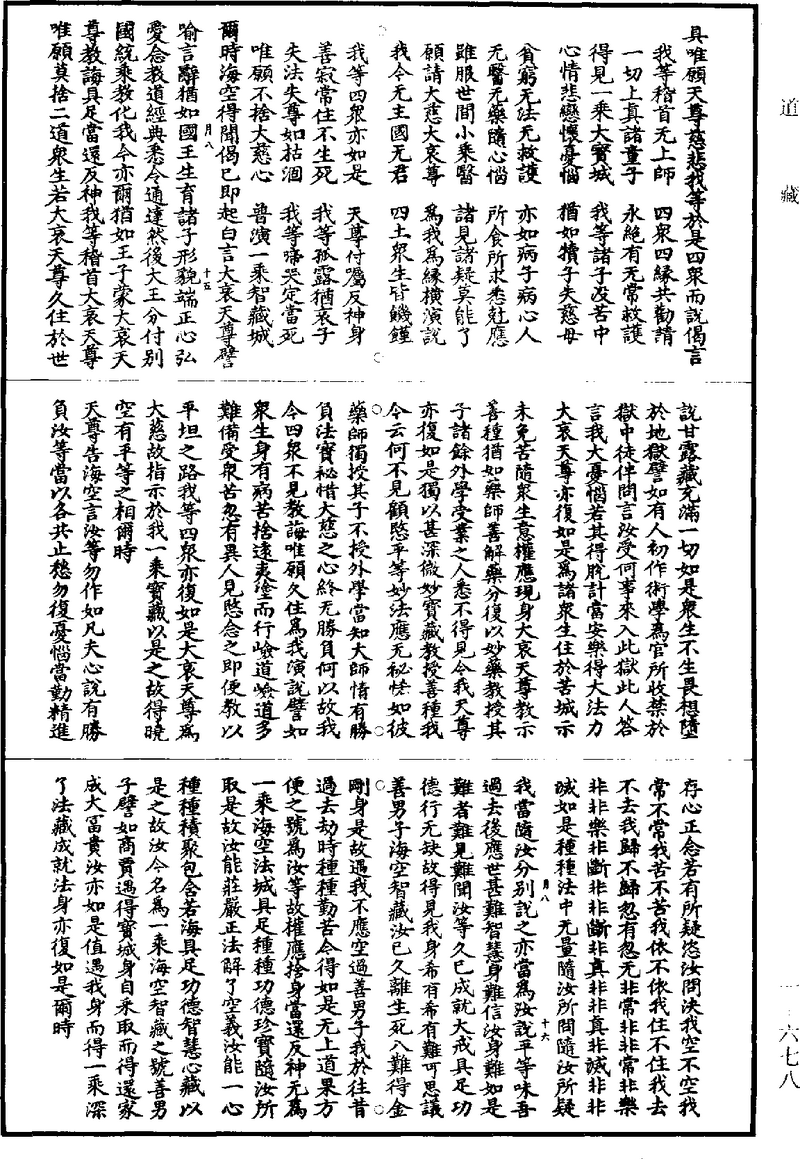 道藏
一-六七八
具唯願天尊慈悲我等於是四衆而說偈言
我等稽首无上師　四衆四緣共勸請
一切上真諸童子　永絶有无常救護
得見一乘大寶城　我等諸子没苦中
心情悲戀懷憂惱　猶如犢子失慈母
貧窮无法无救護　亦如病子病心人
无醫无藥隨心惱　所食所求悉乖應
雖服世間小乘醫　諸見諸疑莫能了
願請大慈大哀尊　爲我爲緣横演說
我今无主國无君　四土衆生皆饑饉
我等四衆亦如是　天尊付囑反神身
善寂常住不生死　我等孤露猶哀子
失法失尊如枯涸　我等啼哭定當死
唯願不捨大慈心　普演一乘智藏城
爾時海空得聞偈已即起白言大哀天尊譬
月八　十五
喻言辭猶如國王生育諸子形貌端正心弘
愛念教道經典悉令通達然後大王分付別
國統乘教化我今亦爾猶如王子蒙大哀天
尊教誨具足當還反神我等稽首大哀天尊
唯願莫捨二道衆生若大哀天尊久住於世
說甘露藏充滿一切如是衆生不生畏想墮
於地獄譬如有人初作術學爲官所收禁於
獄中徒伴問言汝受何事來入此獄此人答
言我大憂惱若其得脱計當安樂得大法力
大哀天尊亦復如是爲諸衆生住於苦城示
未免苦隨衆生意權應現身大哀天尊教示
善種猶如藥師善解藥分復以妙藥教授其
子諸餘外學受業之人悉不得見今我天尊
亦復如是獨以甚深微妙寶藏教授善種我
今云何不見顧愍平等妙法應无祕恡如彼
藥師獨授其子不授外學當知大師情有勝
負法寶祕惜大慈之心終无勝負何以故我
今四衆不見教誨唯願久住爲我演說譬如
衆生身有病苦捨遠夷塗而行嶮道嶮道多
難備受衆苦忽有異人見愍念之即便教以
平坦之路我等四衆亦復如是大哀天尊爲
大慈故指示於我一乘寶藏以是之故得曉
空有平等之相爾時
天尊告海空言汝等勿作如凡夫心說有勝
負汝等當以各共止愁勿復憂惱當勤精進
存心正念若有所疑恣汝問決我空不空我
常不常我苦不苦我依不依我住不住我去
不去我歸不歸忽有忽无非常非非常非樂
非非樂非斷非非斷非真非非真非滅非非
滅如是種種法中无量隨汝所問隨汝所疑
我當隨汝分別說之亦當爲汝說平等味吾
月八　十六
過去後應世甚難智慧身難信汝身難如是
難者難見難聞汝等久已成就大戒具足功
德行无缺故得見我身希有希有難可思議
善男子海空智藏汝已久離生死八難得金
剛身是故遇我不應空過善男子我於往昔
過去劫時種種勤苦今得如是无上道果方
便之號爲汝等故權應捨身當還反神无爲
一乘海空法城具足種種功德珍寶隨汝所
取是故汝能莊嚴正法解了空義汝能一心
種種積聚包含若海具足功德智慧心藏以
是之故汝今名爲一乘海空智藏之號善男
子譬如商賈遇得寶城身自采取而得還家
成大冨貴汝亦如是值遇我身而得一乘深
了法藏成就法身亦復如是爾時